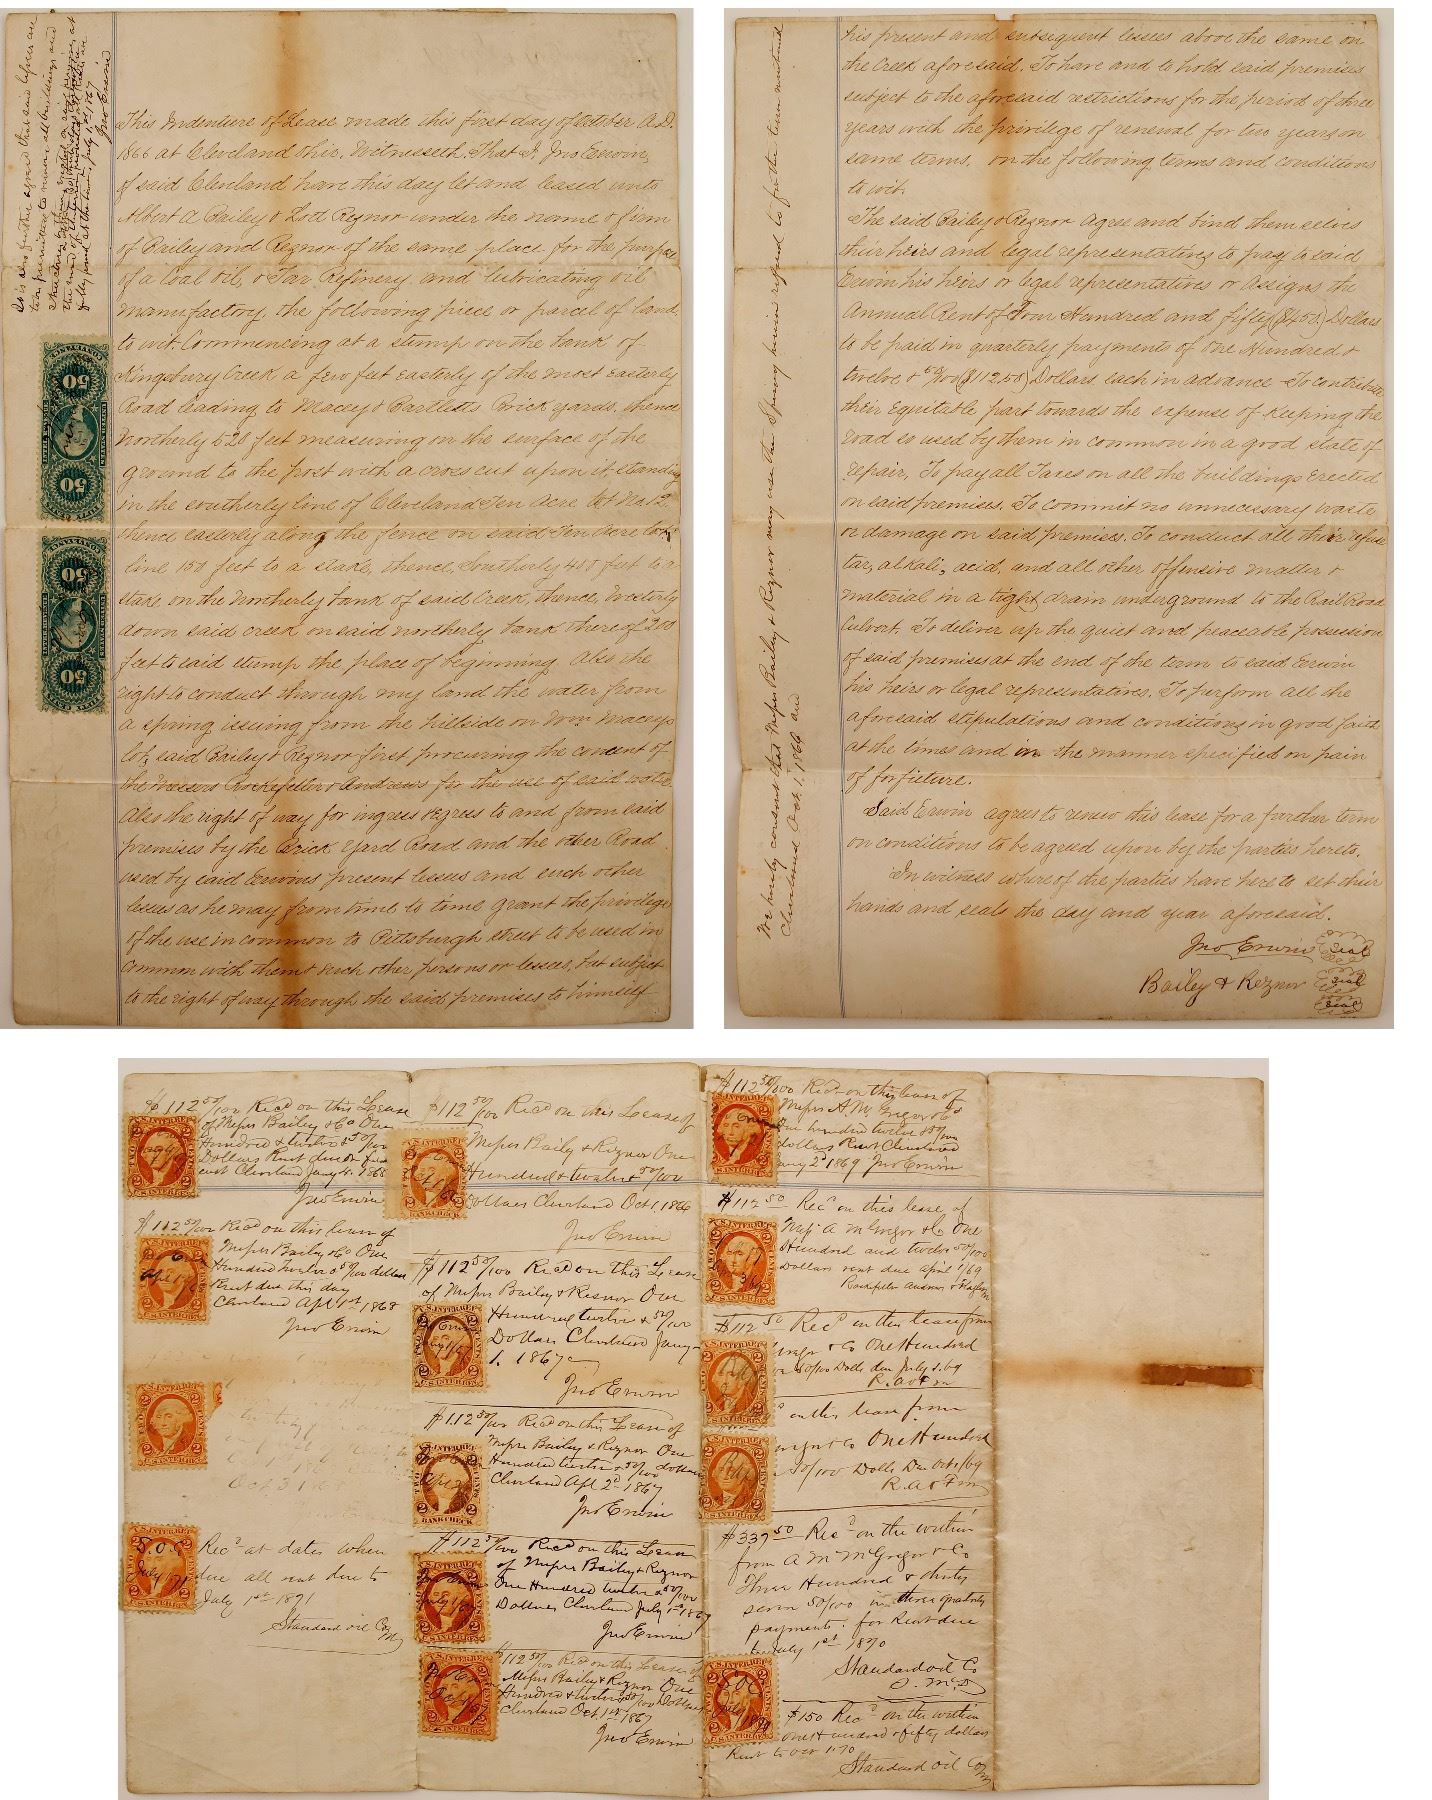 This Indenture of Lease made this first day of October A.D.
1866 at Cleveland Ohio, Witnesseth, That I, Jno Erwin,
of said Cleveland have this day let and leased unto
Albert A Bailey & Reznor under the name & firm
of Bailey and Reznor of the same place for the purpose
of a Coal Oil, & Tar Refinery and lubricating oil
manufactory the following piece or parcel of land,
to wit. Commencing at a stump on the bank of
Kingsbury Creek a few feet easterly of the most easterly
Road leading to Macey & Bartletts Brick yards, thence
Northerly 520 feet measuring on the surface of the
ground to the post with a cross cut upon it standing
in the southerly line of Cleveland Ten Acre lot No. 12
thence easterly along the fence on said Ten Acre lot
line 150 feet to a stake, thence, Southerly 400 feet to a
stake on the Northerly bank of said Creek, thence, Westerly
down said creek on said northerly bank thereof 200
feet to said stump the place of beginning. Also the
right to conduct through my land the water from
a spring issuing from the hillside on Wm Maceys
lot, said Bailey & Reznor first procuring the consent of
the Messers Rockefeller & Andrews for the use of said water
Also the right of way for ingress & egress to and from said
premises by the Brick Yard Road and the other Road
used by said Erwins present lesses and such other
lesses as he may from time to time grant the privilege
of the use in common to Pittsburgh street to be used in
common with them & such other persons or lesses, but subject
to the right of way through the said premises to himself
It is also further agreed that said lessees are
permitted to remove all buildings and
fully paid at the time, July 1st 1867
Jno Erwin
his present and subsequent lesses above the same on
the Creek aforesaid. To have and to hold said premises
subject to the aforesaid restrictions for the period of three
years with the privilege of renewal for two years on
same terms, on the following terms and conditions
to wit.
The said Bailey & Reznor agree and bind themselves
their heirs and legal representatives to pay to said
Erwin his heirs or legal representatives or Assigns the
Annual Rent of Four Hundred and fifty ($450.) Dollars
to be paid in quarterly payments of One Hundred &
twelve & 50/100 ($112.50) Dollars each in advance To contribute
their Equitable part towards the expense of keeping the
road so used by them in common in a good state of
repair, To pay all Taxes on all the buildings Erected
on said premises. To commit no unnecessary waste
or damage on said premises. To conduct all their refuse
tar, alkali, acid, and all other offensive matter &
material in a tight drain underground to the Rail Road
Culvert. To deliver up the quiet and peaceable possession
of said premises at the end of the term to said Erwin
his heirs or legal representatives. To perform all the
aforesaid stipulations and conditions in good faith
at the times and in the manner specified on pain
of forfieture.
Said Erwin agrees to renew this lease for a further term
on conditions to be agreed upon by the parties hereto.
In witness whereof the parties have hereto set their
hands and seals the day and year aforesaid.
Jno Erwin Seal
Bailey & Reznor Seal
Seal
We hereby consent that Messrs Bailey & Reznor may use the Spring herein refered to for the term mentioned
Cleveland Oct. 1, 1866
$112 50/100 Recd on this Lease
of Messrs Bailey & Co One
Hundred & twelve 50/100
Dollars Rent due
Cleveland Jany 4. 1868
Jno Erwin
$112 50/100 Recd on this lease of
Messrs Bailey & Co One
Hundred twelve & 50/100 dollars
Rent due this day
Cleveland Apl 1st 1868
Jno Erwin
S.O.C
July 1/71
Recd at dates when
due all rent due to
July 1st 1871
Standard oil Co
$112 50/100 Recd on this Lease of
Messrs Baily & Reznor One
Hundred & twelve 50/100
Dollars Cleveland Oct 1, 1866
Jno Erwin
$112 50/100 Recd on this Lease
of Messrs Bailey & Resnor One
Hundred twelve & 50/100
Dollars Cleveland Jany
1. 1867
Jno Erwin
$112 50/100 Recd on this Lease of
Messrs Bailey & Reznor One
Hundred twelve & 50/100 dollars
Cleveland Apl 2d 1867
Jno Erwin
$112 50/100 Recd on this Lease
of Messrs Bailey & Reznor
One Hundred twelve & 50/100
Dollars Cleveland July 1st 1867
Jno Erwin
$112 50/100 Recd on this Lease of
Messrs Bailey & Reznor One
Hundred & twelve 50/100 Dollars
Cleveland Oct 1st 1867
Jno Erwin
$112 50/100 Recd on this lease of
Messrs A. M. Gregor & Co
One hundred twelve 50/100
dollars Rent Cleveland
Jany 2d 1869 Jno Erwin
$112 50 Recd on this lease of
Messrs A McGregor & Co One
Hundred and twelve 50/100
Dollars rent due april 1/69
Rockefeller Andrews & Flagler
$112 50 Recd on this lease from
& Co One Hundred
50/100 Dolls due July 1. 69
R. A & F
on this lease from
& Co One Hundred
50/100 Dolls Due Oct 1/69
R. A & F
$337 50 Recd on the within
from A M McGregor & Co
Three Hundred & thirty
seven 50/100 in three quarterly
payments. for Rent due
to July 1st 1870
Standard oil Co
$150 Recd on the within
one Hundred & fifty dollars
Rent to Oct 1. 70
Standard Oil Co